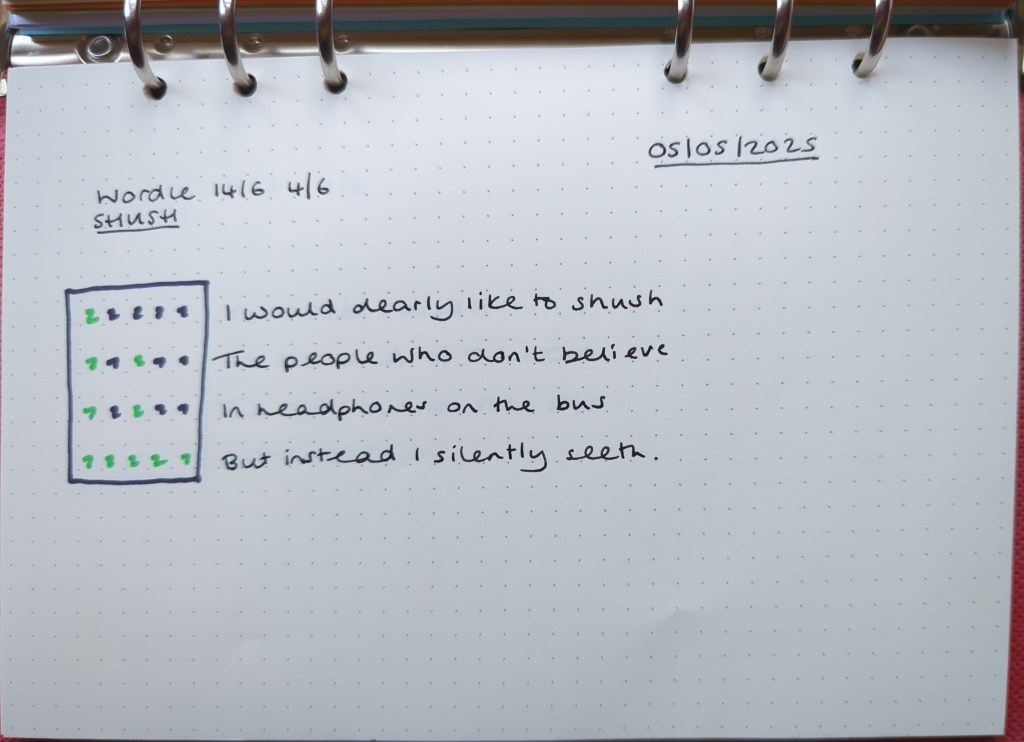 05/05/2025
Wordle 1416 4/6
SHUSH
I would dearly like to shush
The people who don't believe
In headphones on the bus
But instead I silently seeth.